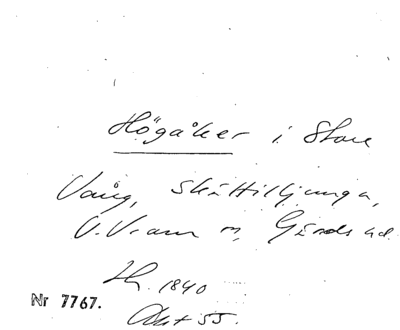 Högåker i Stora
Vång, Skättiljunga,
V. Vram o, Gärds hd.
Hr. 1840
Nr 7767.
Akt 55.